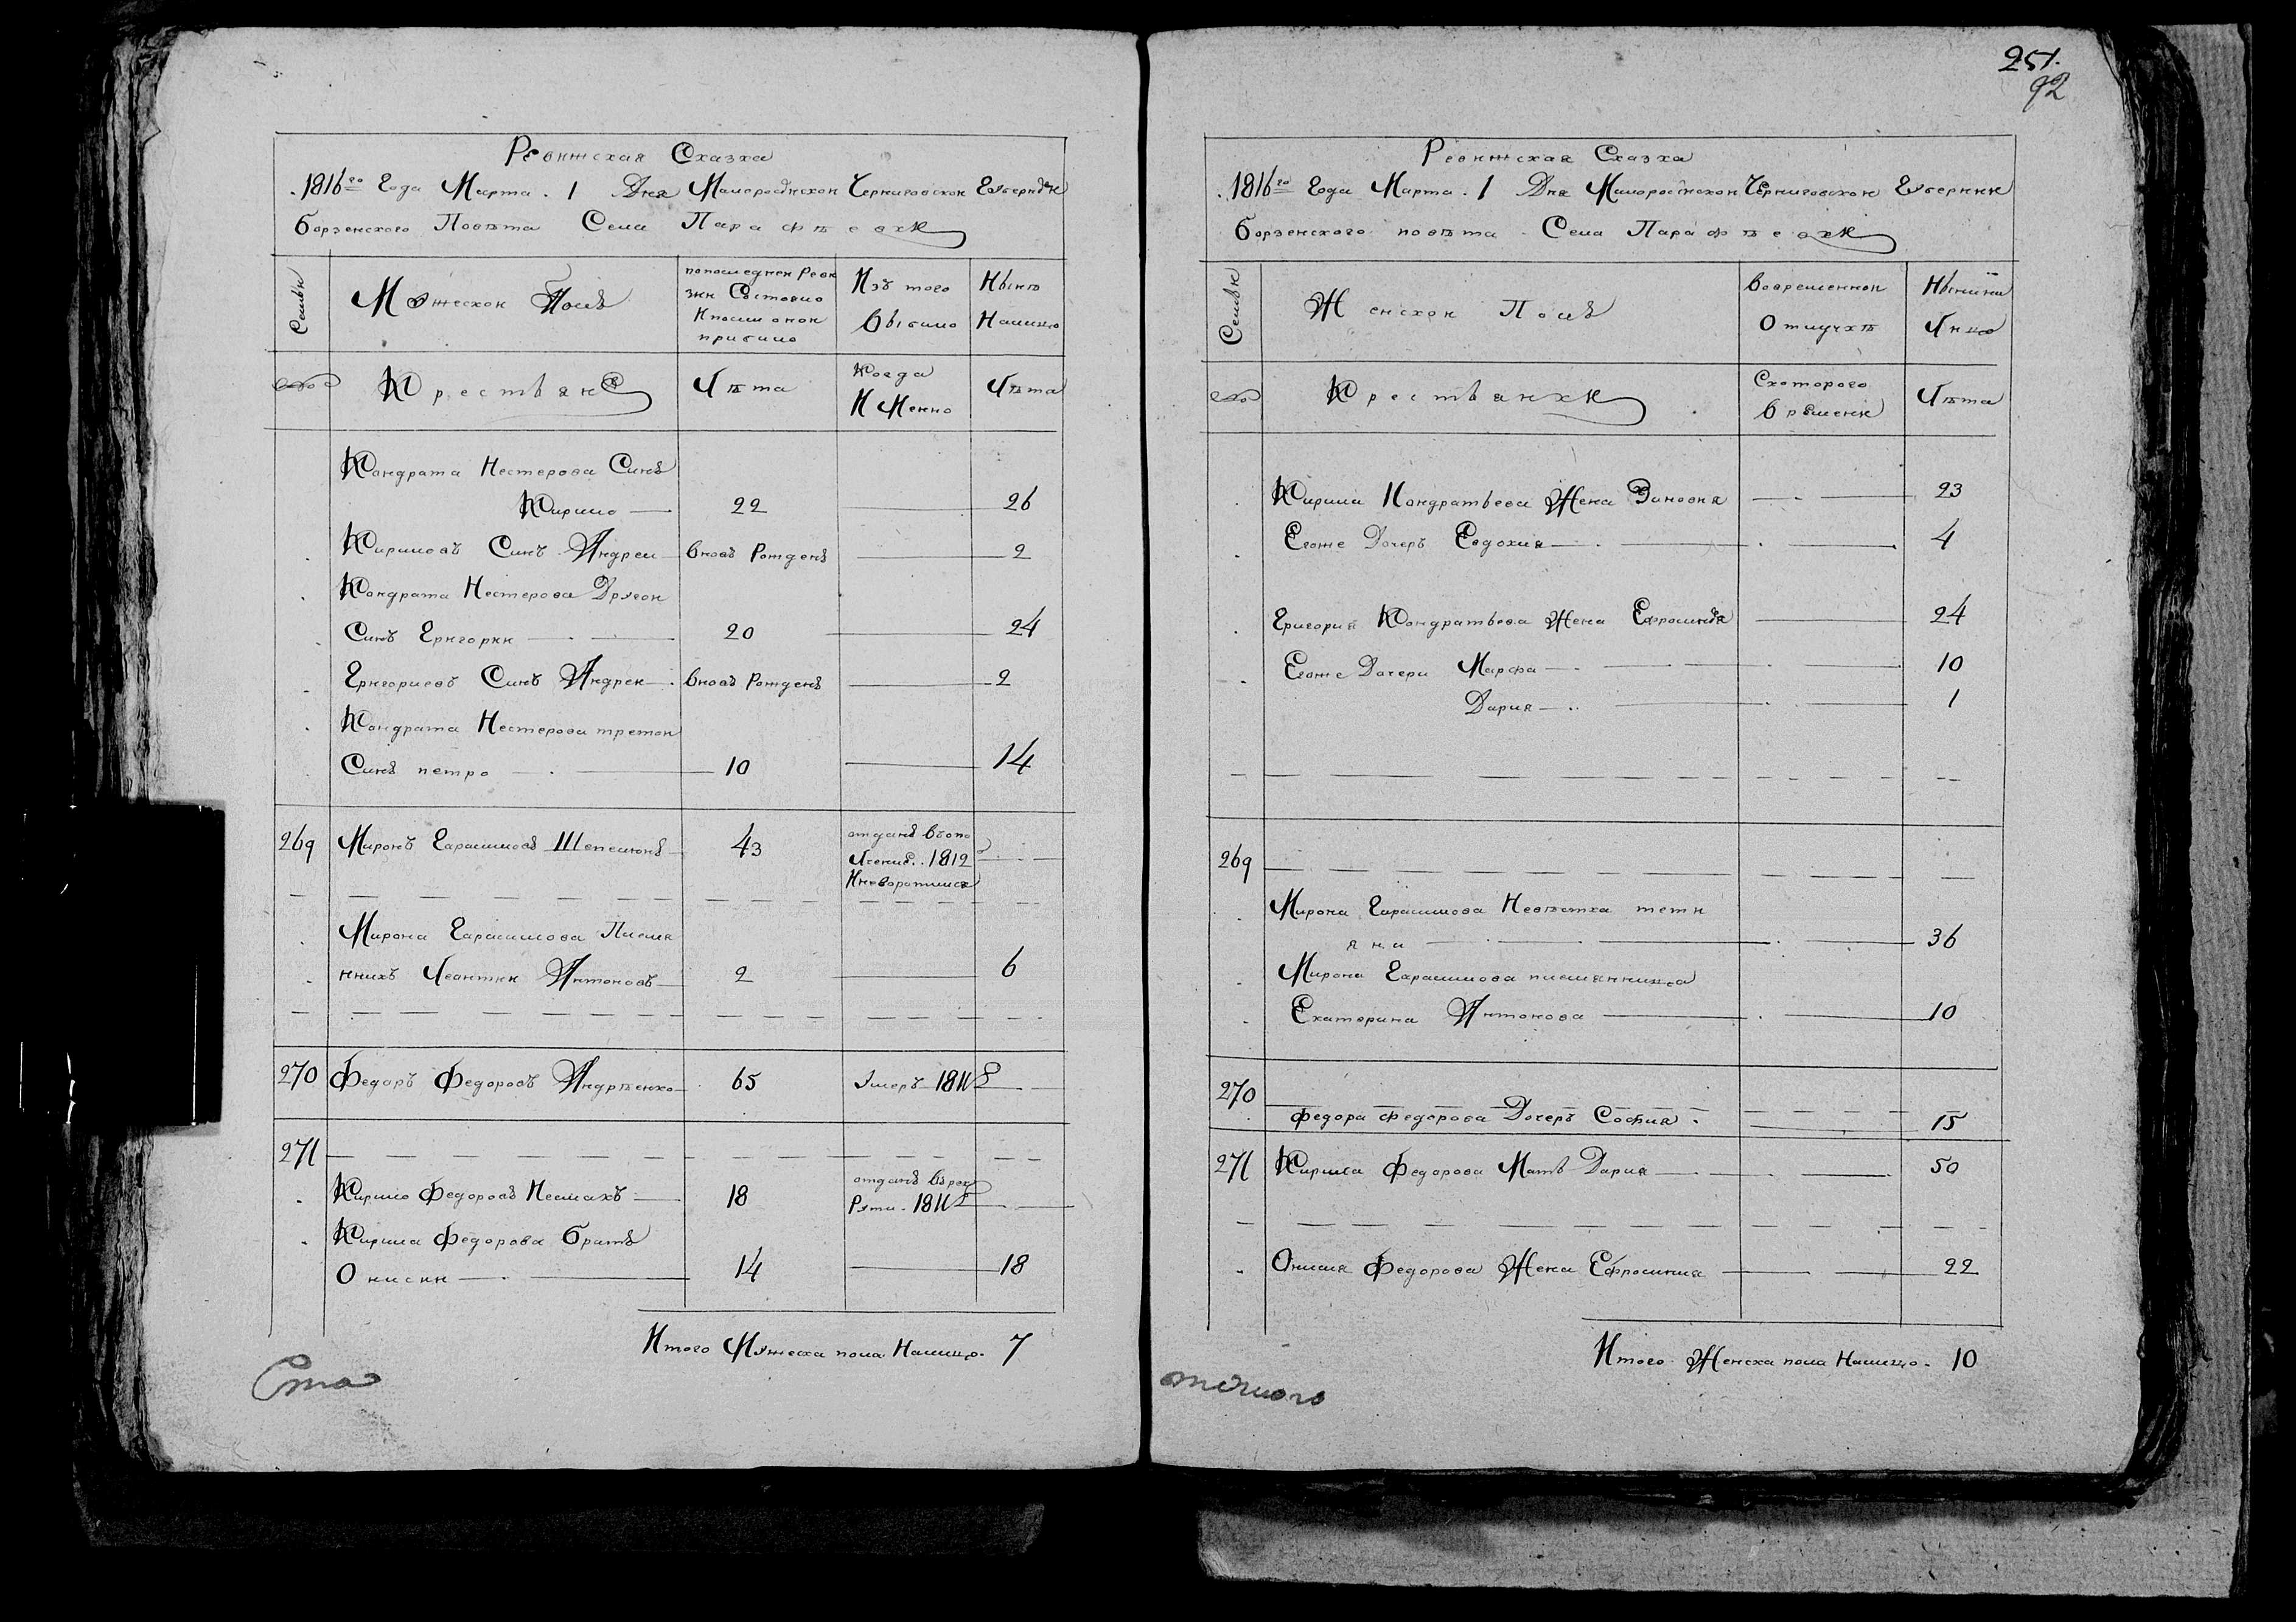 251.
92
Ревижская Сказка
1816го Года Марта 1 Дня Малоросийской Черниговской Губернии
Борзенского Повѣта Села Парафѣевки
Семьи
Мужеской Полъ
попоследней Реви
зии Состояло
Ипосли оной
прибило
Изъ того
Выбило
Нынѣ
Налицо
Крестьяне
Лѣта
Когда
И Менно
Лѣта
Кондрата Нестерова Синъ
Кирило 22 26
Кириловъ Синъ Андреи вновь Рожденъ 2
Кондрата Нестерова Другой
Синъ Григории 20 24
Григориевъ Синъ Андреи вновь Рожденъ 2
Кондрата Нестерова третои
Синъ петро 10 14
269 Миронъ Гарасимовъ Шепелюнъ 43
отданъ вьопо
лчение 1812
Инево­ротился
Мирона Гарасимова Племя
нникъ Леонтии Антоновъ 2 6
270 Федоръ Федоровъ Андрѣенко 65 Умеръ 1811
271
Кирило Федоровъ Несмахъ 18
отданъ врек
Рути 1811
Кирила Федорова братъ
Онисии 14 18
Итого Мужеска пола Налицо 7
Сто
Ревижская Сказка
1816го Года Марта 1 Дня Малоросийской Черниговской Губернии
Борзенского повѣта Села Парафѣевки
Семьи
Женской Полъ
Вовременной
Отлучкѣ
Ныне на
Лицо
Крестьянки
Скоторого
времени
Лѣта
Кирила Кондратьева Жена Зиновия 23
Егоже Дочеръ Евдокия 4
Григория Кондратьева Жена Ефросиния 24
Егоже Дочери Марфа 10
Дария 1
269
Мирона Гарасимова Невѣстка тети
яна 36
Мирона Гарасимова племянница
Екатерина Антонова 10
270
Федора Федорова Дочеръ София 15
271 Кирила Федорова Мать Дария 50
Онисия Федорова Жена Ефросиния 22
Итого Женска пола Налицо 10